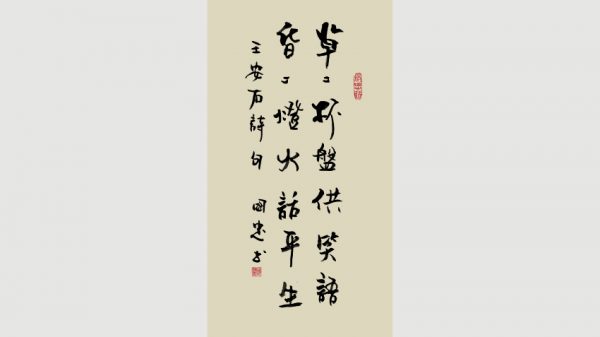 草〻杯盤供笑語
昏〻燈火話平生
王安石詩句 國忠书